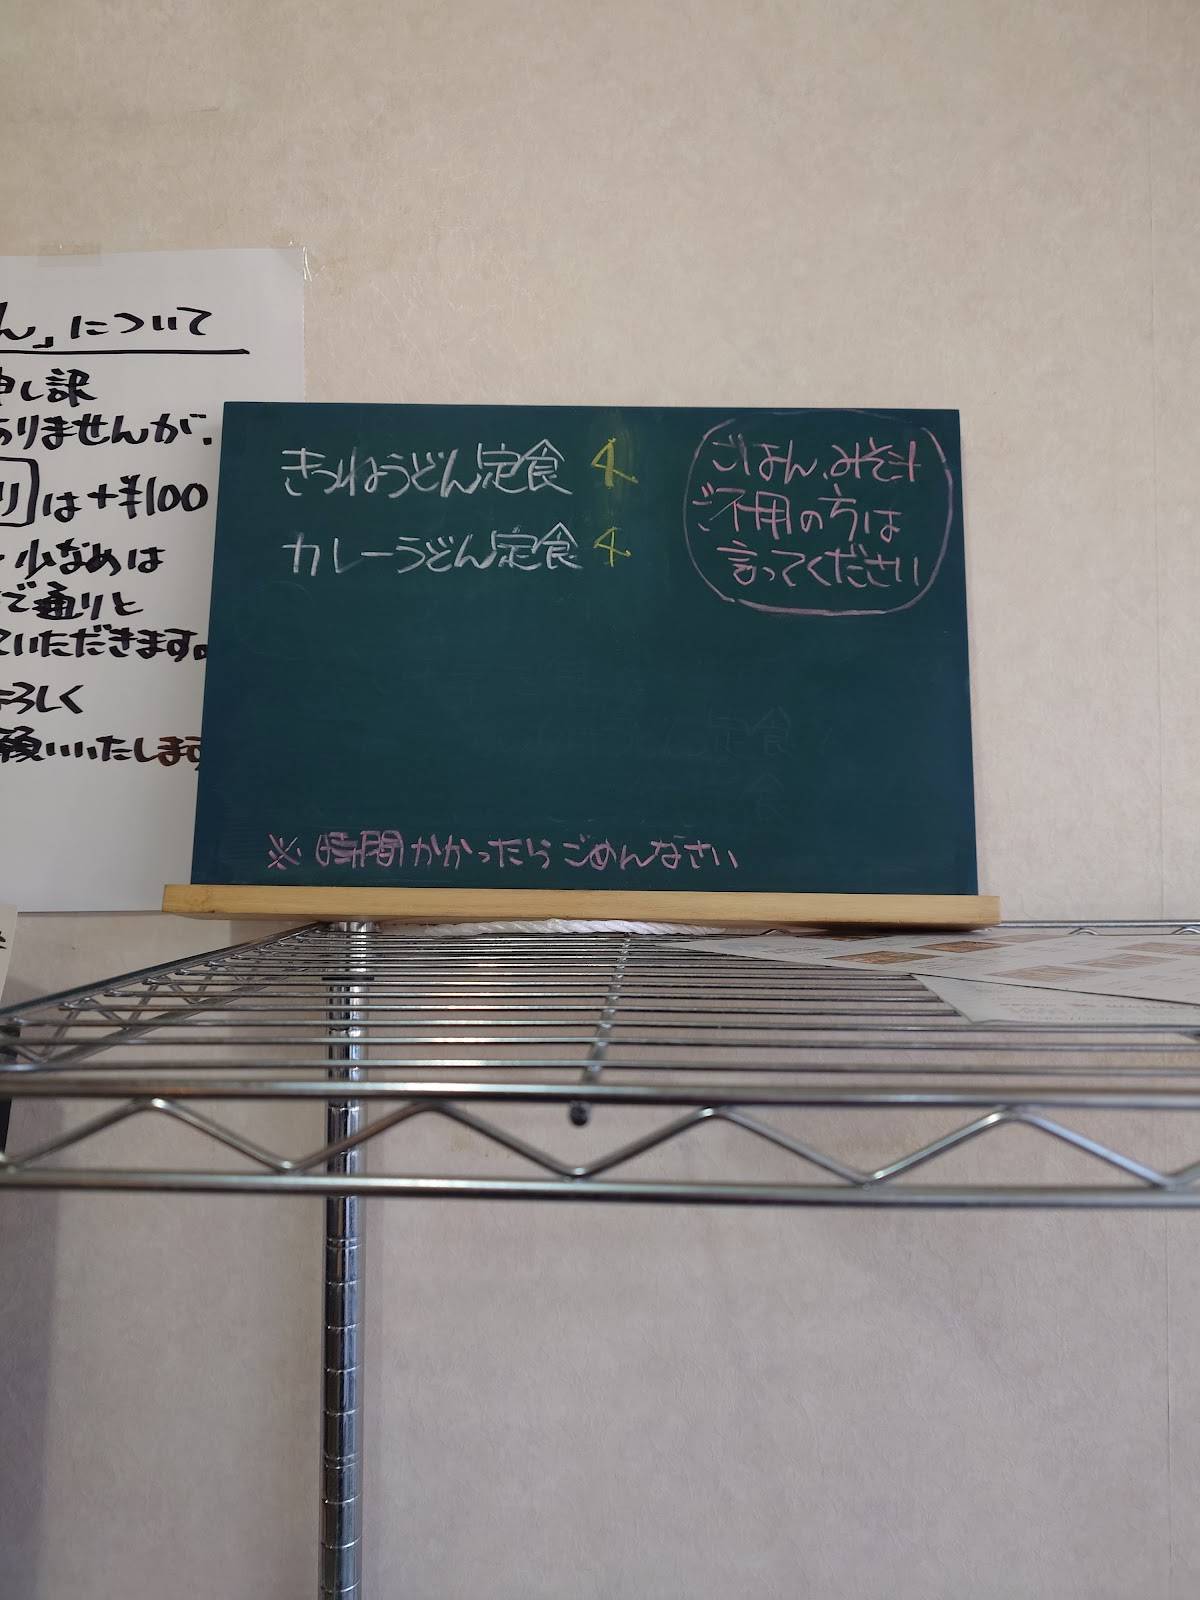 ん」について
申し訳
ありませんが、
り は+¥100
少なめは
で通りと
ていただきます。
よろしく
願いいたします
きつねうどん定食 4
カレーうどん定食 4
ごはん、みそ汁
ご不用の方は
言ってください
※時間かかったらごめんなさい